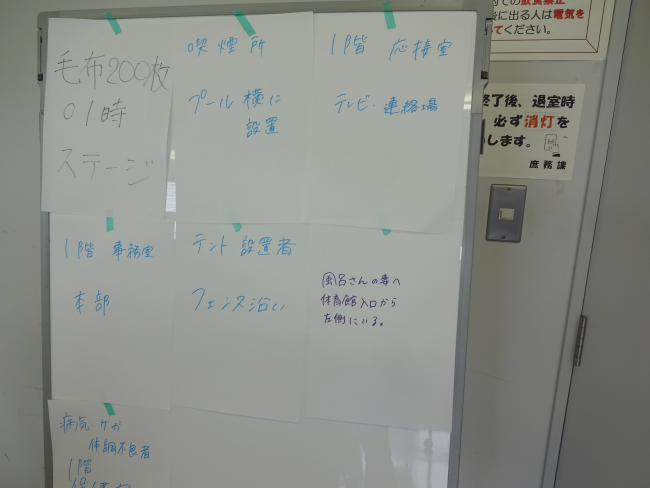 毛布200枚
01時
ステージ
喫煙所
プール横に
設置
1階 応接室
テレビ・連絡場
1階 事務室
本部
テント設置者
フェンス沿い
体育館入口から
左側にいる。
病気・ケガ
体調不良者
1階
での飲食禁止
に出る人は電気を
てください。
終了後、退室時
必ず消灯を
します。
庶務課